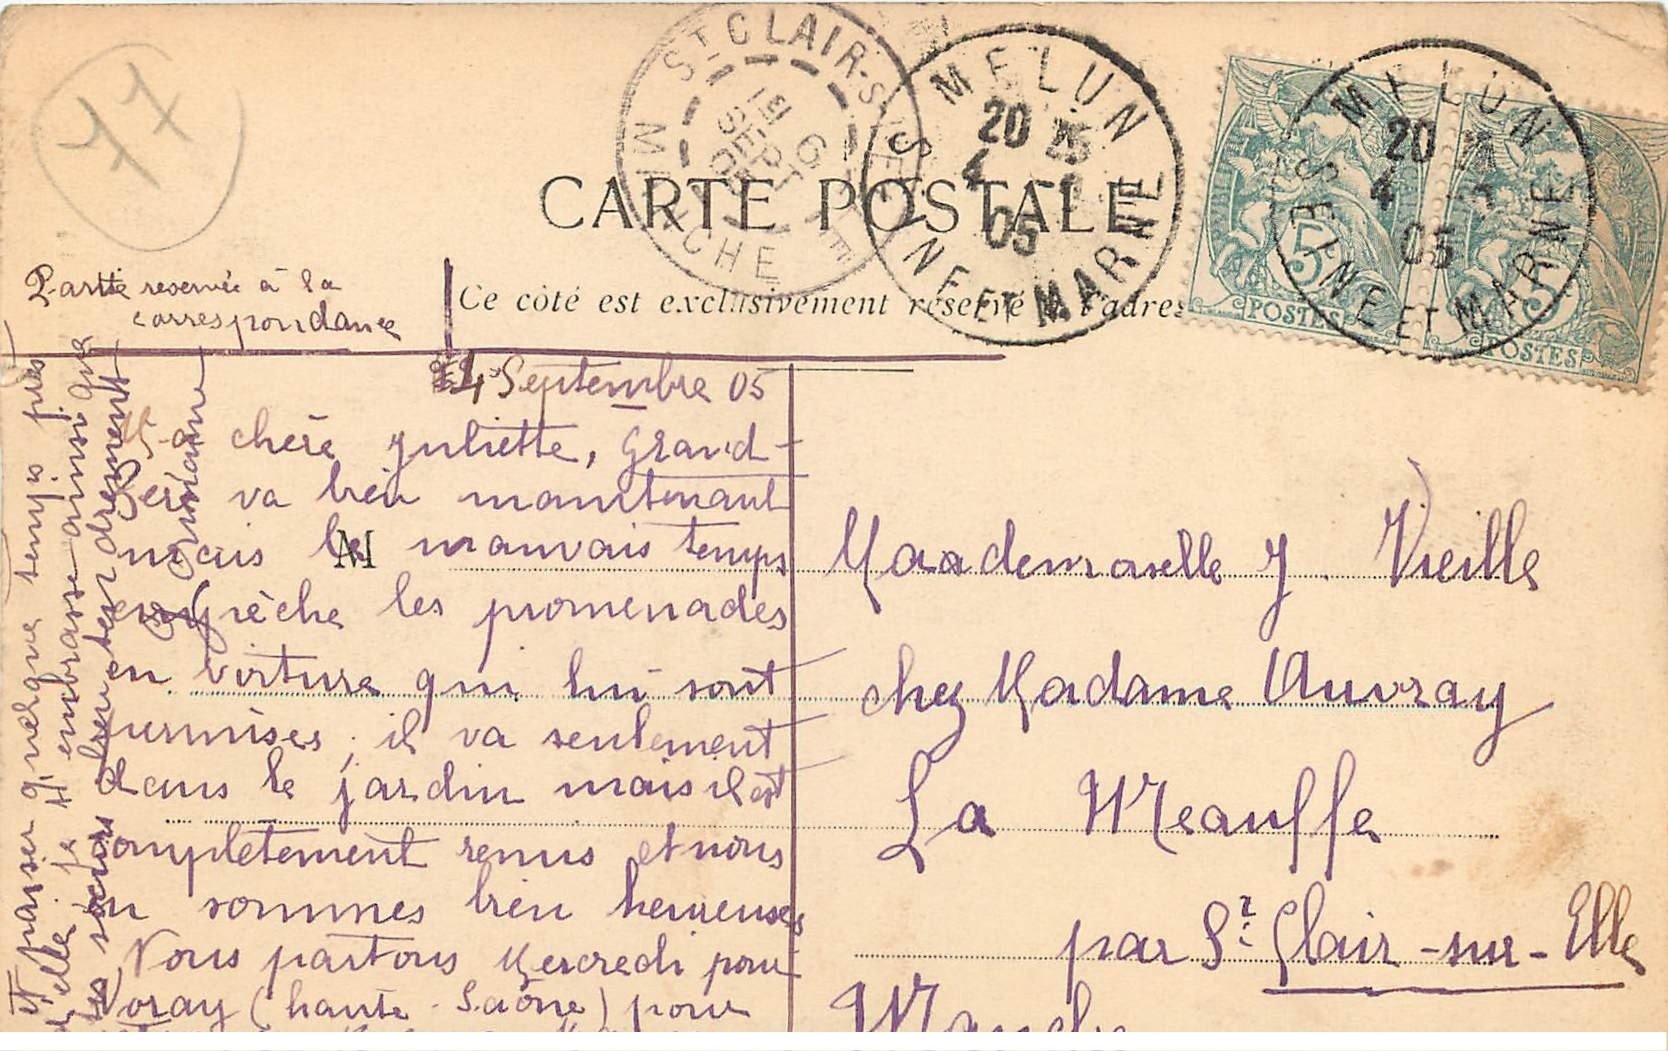 77
ST CLAIR-S
6 SEPT 05
MANCHE
MELUN
20 25
4 9
05
SEINE ET MARNE
MELUN
20 25
4 9
05
SEINE ET MARNE
5
POSTES
5
POSTES
CARTE POSTALE
Ce côté est exclusivement réservé à l'adres
Partie reservée à la
correspondance
4 Septembre 05
Ma chère Juliette, Grand-
Père va bien maintenant
mais le mauvais temps
M
empêche les promenades
en voiture qui lui sont
permises, il va seulement
dans le jardin mais il est
complètement remis et nous
en sommes bien heureuses
Nous partons Mercredi pour
Voray (haute-Saône) pour
et passer quelque temps près
d'elle. je t'embrasse ainsi que
tes sœurs bien tendrement
Germaine
Mademoiselle J. Vieille
chez Madame Auvray
La Meauffe
par St. Clair-sur-Elle
Manche